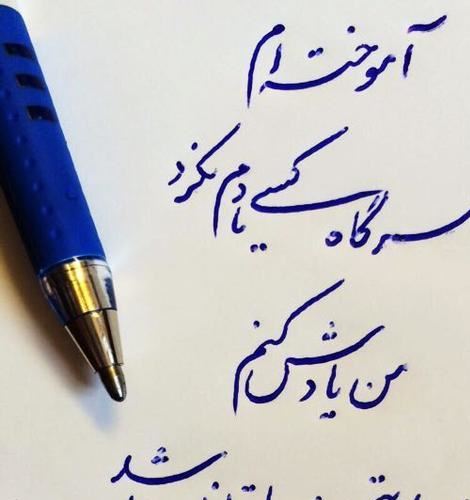 آموخته ام
هرگاه کسی یادم نکرد
من یادش کنم
شد